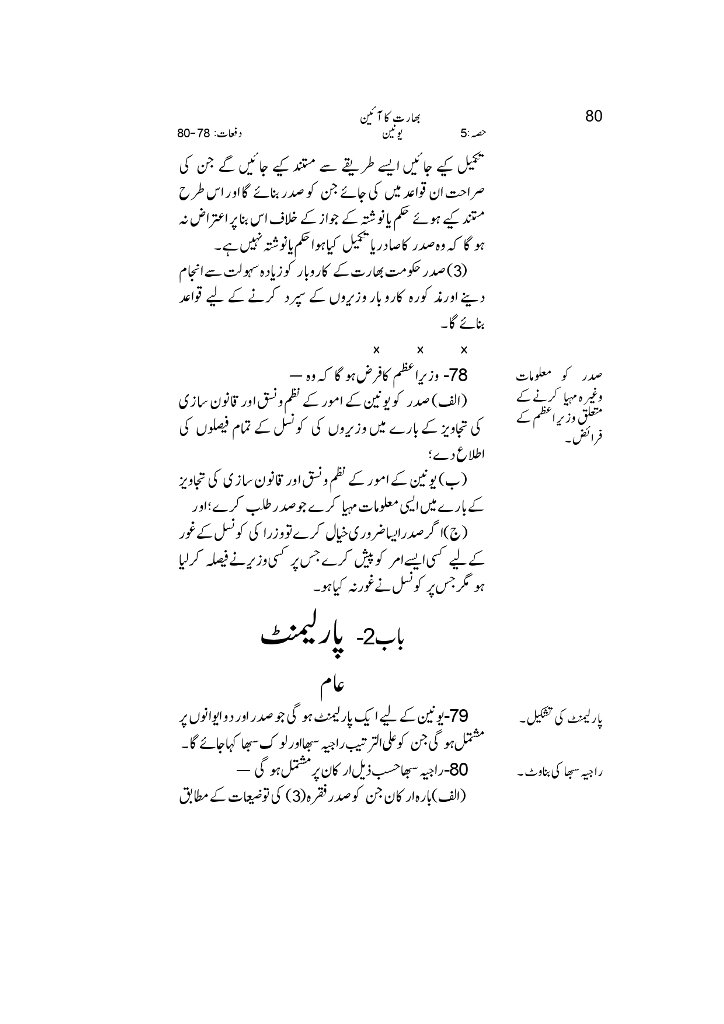 80
بھارت کا آئین
حصہ:5 یونین دفعات: 78-80
تکمیل کیے جائیں ایسے طریقے سے مستند کیے جائیں گے جن کی
صراحت ان قواعد میں کی جائے جن کو صدر بنائے گا اور اس طرح
مستند کیے ہوئے حکم یا نوشتہ کے جواز کے خلاف اس بنا پر اعتراض نہ
ہو گا کہ وہ صدر کا صادر یا تکمیل کیا ہوا حکم یا نوشتہ نہیں ہے۔
(3) صدر حکومت بھارت کے کاروبار کو زیادہ سہولت سے انجام
دینے اور مذکورہ کاروبار وزیروں کے سپرد کرنے کے لیے قواعد
بنائے گا۔
x x x
صدر کو معلومات
وغیرہ مہیا کرنے کے
متعلق وزیر اعظم کے
فرائض۔
78- وزیر اعظم کا فرض ہو گا کہ وہ —
(الف) صدر کو یونین کے امور کے نظم و نسق اور قانون سازی
کی تجاویز کے بارے میں وزیروں کی کونسل کے تمام فیصلوں کی
اطلاع دے؛
(ب) یونین کے امور کے نظم و نسق اور قانون سازی کی تجاویز
کے بارے میں ایسی معلومات مہیا کرے جو صدر طلب کرے؛ اور
(ج) اگر صدر ایسا ضروری خیال کرے تو وزرا کی کونسل کے غور
کے لیے کسی ایسے امر کو پیش کرے جس پر کسی وزیر نے فیصلہ کر لیا
ہو مگر جس پر کونسل نے غور نہ کیا ہو۔
باب2- پارلیمنٹ
عام
پارلیمنٹ کی تشکیل۔
79-یونین کے لیے ایک پارلیمنٹ ہو گی جو صدر اور دو ایوانوں پر
مشتمل ہو گی جن کو علی الترتیب راجیہ سبھا اور لوک سبھا کہا جائے گا۔
راجیہ سبھا کی بناوٹ۔
80-راجیہ سبھا حسب ذیل ارکان پر مشتمل ہو گی —
(الف) بارہ ارکان جن کو صدر فقرہ (3) کی توضیعات کے مطابق